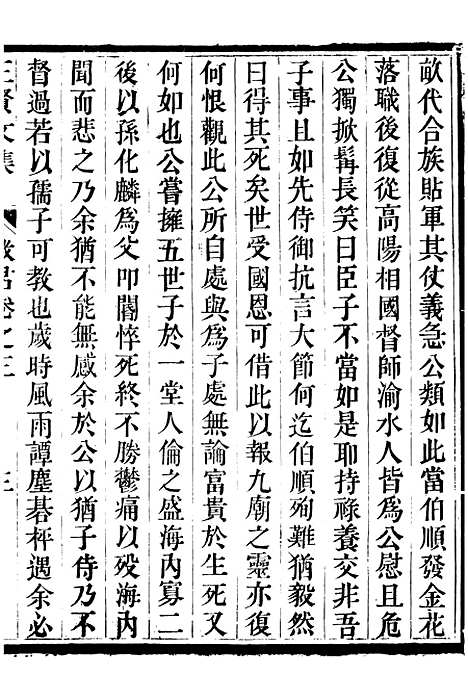 畝代合族貼軍其仗義急公類如此當伯順發金花
落職後復從高陽相國督師渝水人皆爲公慰且危
公獨掀髯長笑曰臣子不當如是耶持祿養交非吾
子事且如先侍御抗言大節何迄伯順殉難猶毅然
曰得其死矣世受國恩可借此以報九廟之靈亦復
何恨觀此公所自處與爲子處無論富貴於生死又
何如也公嘗擁五世子於一堂人倫之盛海内寡二
後以孫化麟爲父叩閽悴死終不勝鬱痛以歿海内
聞而悲之乃余猶不能無感余於公以猶子侍乃不
督過若以孺子可教也歲時風雨譚麈碁枰遇余必
三賢文集
卷之三
三